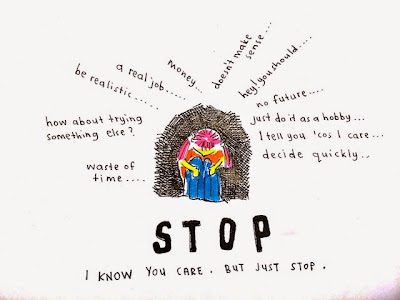 doesn't make
sense...
money...
hey! you should....
a real job.....
be realistic.....
no future....
how about trying
something else?
just do it as a hobby...
I tell you 'cos I care...
waste of
time....
decide quickly...
STOP
I KNOW YOU CARE. BUT JUST STOP.